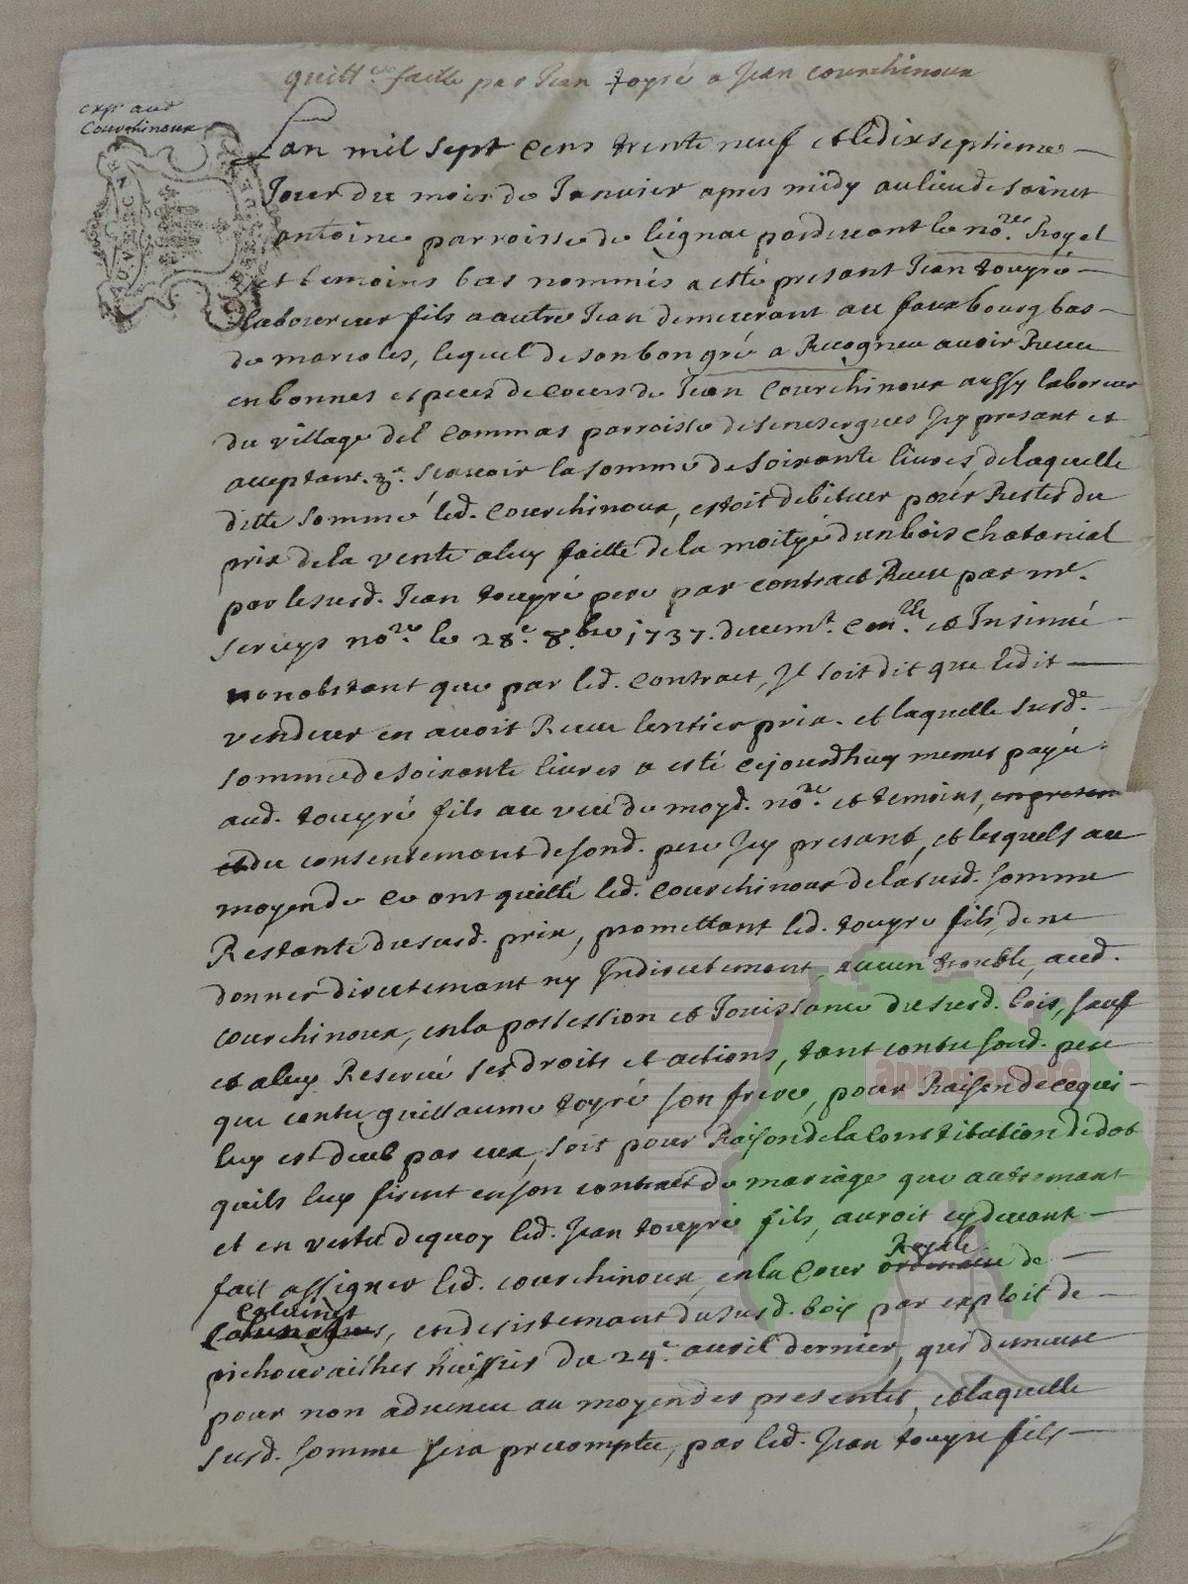 quitt.ce faitte par Jean toyré a Jean courchinoux
exp.é aud
Courchinoux
Lan mil sept cens trente neuf et le dix septieme
Jour du mois de Janvier apres midy au lieu de sainct
antoine parroisse de leignac pardevant le no.re Royal
et temoins bas nommés a esté presant Jean touyré
laboureur fils a autre Jean demeurant au fauxbourg bas
de marcoles, lequel de son bon gré a Recogneu avoir Receu
en bonnes especes de cours de Jean Courchinoux aussy laboureur
du village del Commas parroisse de senesergues Icy presant et
acceptant. &.a scavoir la somme de soixante livres, de laquelle
ditte somme led. Courchinoux, estoit debiteur pour Restes du
prix de la vente a luy faitte de la moityé d'un bois chatanial
par le susd. Jean touyré pere par contract Receu par m.e
serieys no.re le 28.e 8.bre 1737. duemt. con.llé et Insinué
nonobstant que par led. contract, Il soit dit que ledit
vendeur en avoit Receu lentier prix. et laquelle susd.e
somme de soixante livres a esté cejourdhuy memes payée
aud. touyré fils au veu de moyd. no.re et temoins, en presen
et du consentement de sond. pere Icy presant, et lesquels au
moyen de ce ont quitté led. Courchinoux de la susd. somme
Restante du susd. prix, promettant led. touyre fils, de ne
donner directement ny Indirectement, aucun trouble, aud.
Courchinoux, en la possession et Jouissance du susd. bois, sauf
et a luy Reservé ses droits et actions, tant contre sond. pere
que contre guillaume toyré son frere, pour Raison de ce qui
luy est deub par eux, soit pour Raison de la Constitution de dot
quils luy firent en son contract de mariage que autrement
et en vertu de quoy led. Jean touyré fils, auroit cy devant
Royale
fait assigner led. courchinoux, en la Cour ordinaire de
calvinet
, en desistement du susd. bois par exploit de
pichourailhes huissier du 24.e avril dernier, qui demeure
pour non advenue au moyen des presentes, et laquelle
susd. somme sera precomptée, par led. Jean touyre fils
apropos